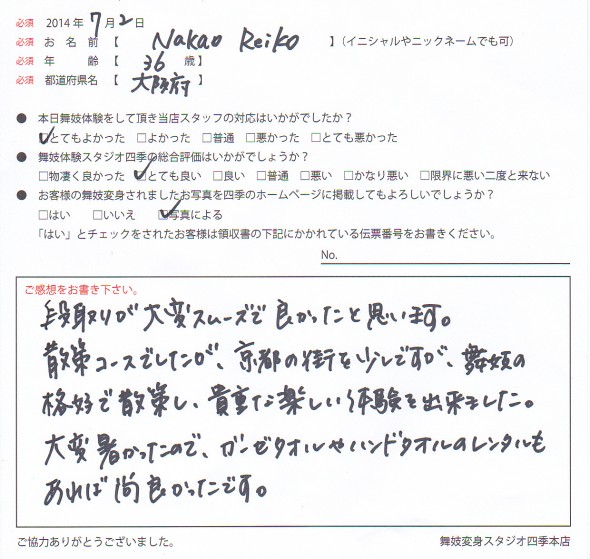 必須 2014年7月2日
必須 お名前【 Nakao Reiko 】(イニシャルやニックネームでも可)
必須 年齢【 36 歳】
必須 都道府県名【 大阪府 】
● 本日舞妓体験をして頂き当店スタッフの対応はいかがでしたか？
☑とてもよかった □よかった □普通 □悪かった □とても悪かった
● 舞妓体験スタジオ四季の総合評価はいかがでしょうか？
□物凄く良かった ☑とても良い □良い □普通 □悪い □かなり悪い □限界に悪い二度と来ない
● お客様の舞妓変身されましたお写真を四季のホームページに掲載してもよろしいでしょうか？
□はい □いいえ ☑写真による
「はい」とチェックをされたお客様は領収書の下記にかかれている伝票番号をお書きください。
No.
ご感想をお書き下さい。
段取りが大変スムーズで良かったと思います。
散策コースでしたが、京都の街を少しですが、舞妓の
格好で散策し、貴重な楽しい体験を出来ました。
大変暑かったので、ガーゼタオルやハンドタオルのレンタルも
あれば尚良かったです。
ご協力ありがとうございました。 舞妓変身スタジオ四季本店